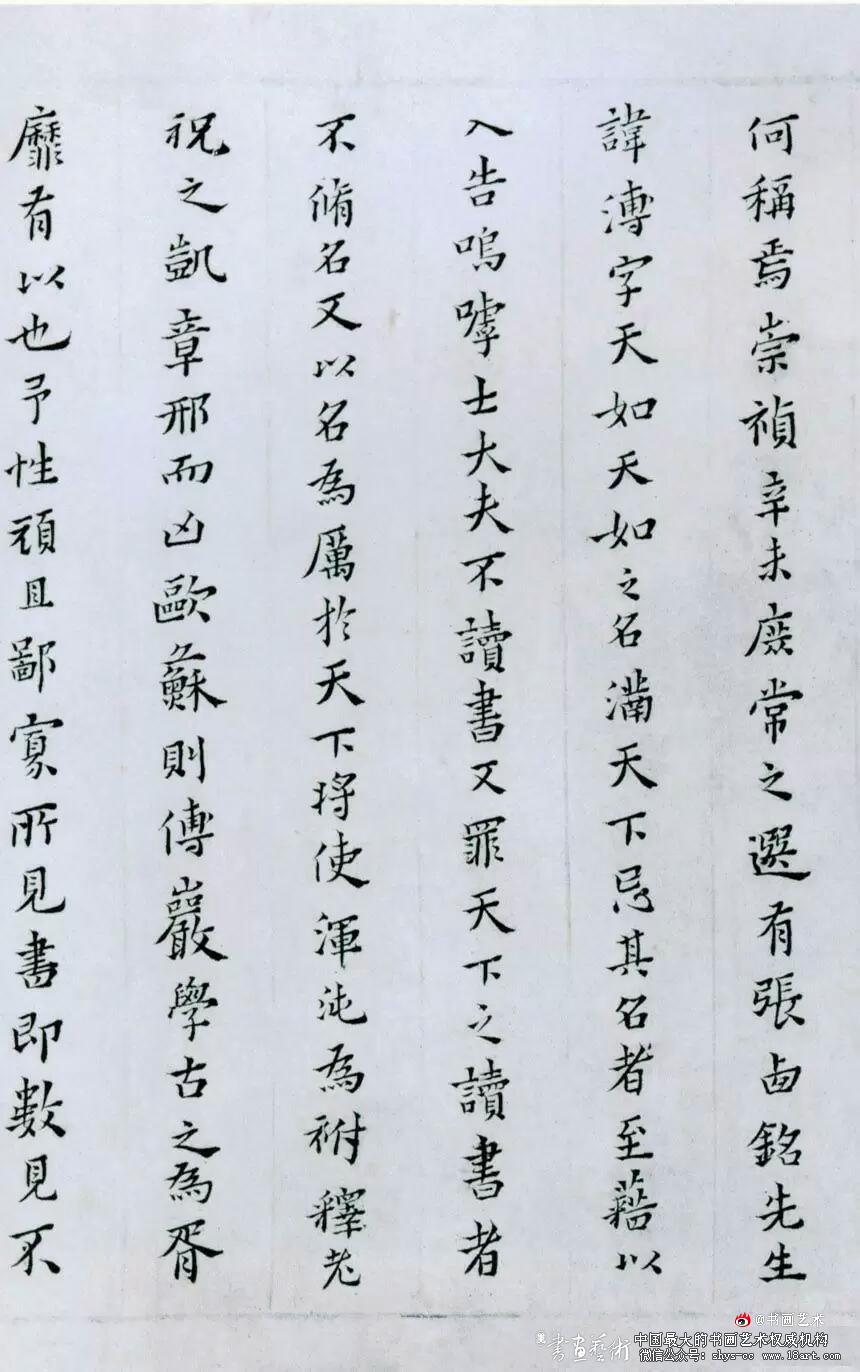 何稱焉崇禎辛未庶常之選有張卣銘先生
諱溥字天如天如之名滿天下忌其名者至藉以
入告嗚嘑士大夫不讀書又罪天下之讀書者
不脩名又以名為厲於天下將使渾沌為祔釋老
祝之凱章邢而凶歐蘇則傅巖學古之為胥
靡有以也予性頑且鄙寡所見書即數見不
@书画艺术
書畫藝術
中国最大的书画艺术权威机构
微信公众号：shys-cc www.18art.com